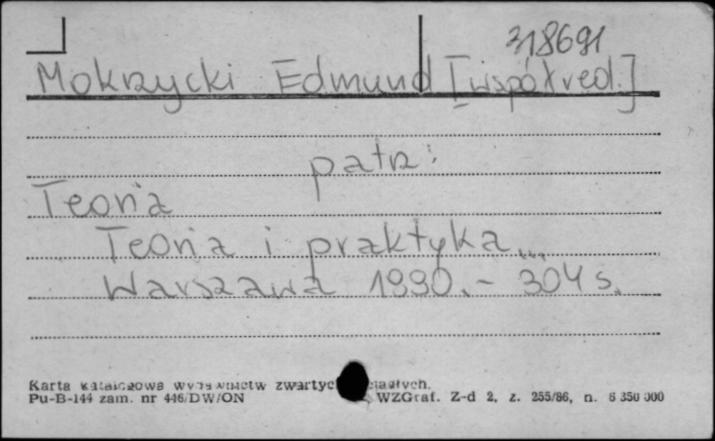 318691
Mokrzycki Edmund [współred.]
patrz:
Teoria
Teoria i praktyka...
Warszawa 1990.- 304 s.
Karta katalogowa wydawnictw zwartych ciągłych.
Pu-B-144 zam. nr 446/DW/ON WZGraf. Z-d 2, z. 255/86, n. 6 350 000